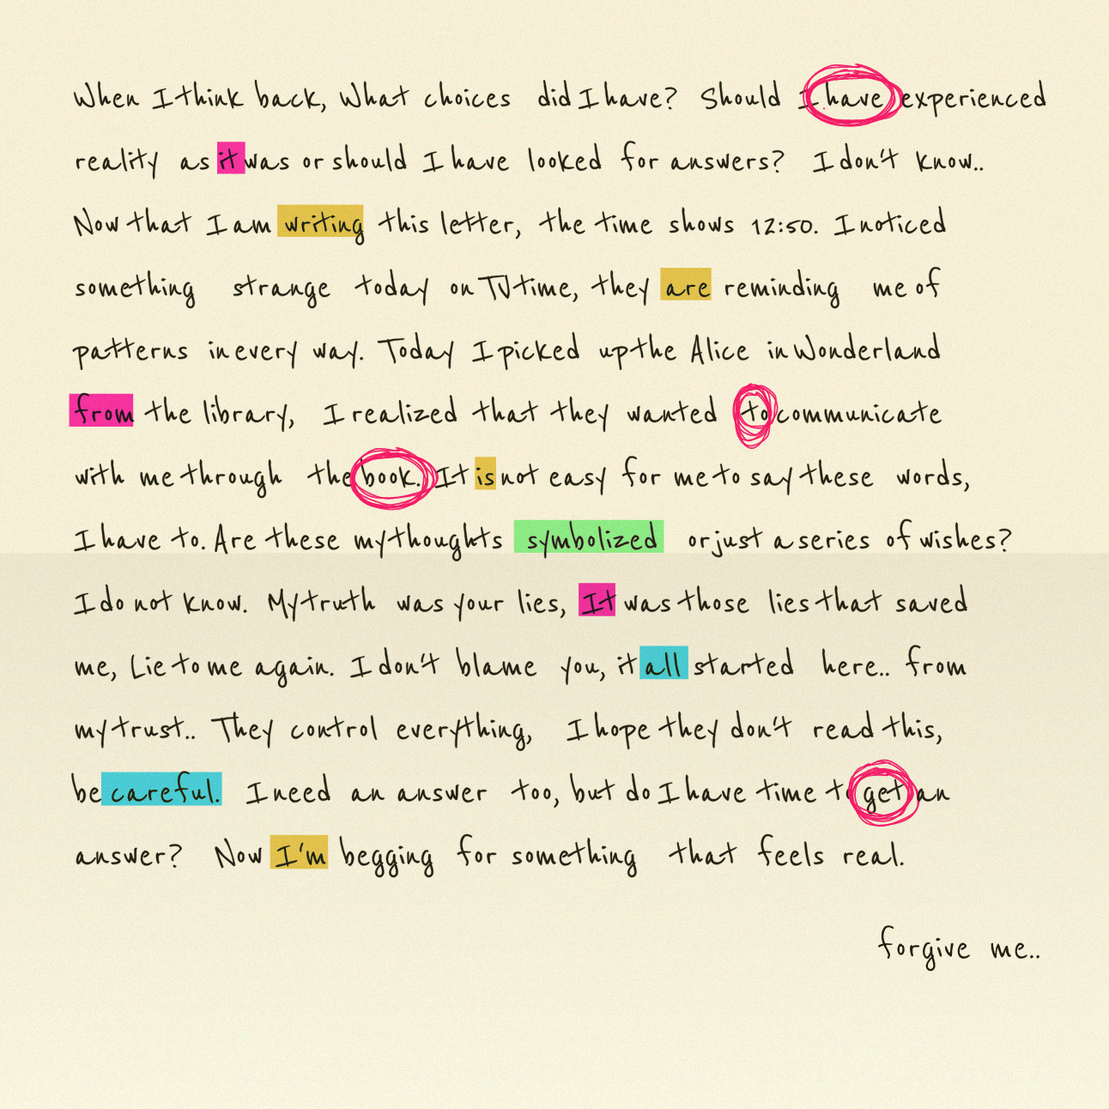 When I think back, What choices did I have? Should I have experienced
reality as it was or should I have looked for answers? I don't know..
Now that I am writing this letter, the time shows 12:50. I noticed
something strange today on TV time, they are reminding me of
patterns in every way. Today I picked up the Alice in Wonderland
from the library, I realized that they wanted to communicate
with me through the book. It is not easy for me to say these words,
I have to. Are these my thoughts symbolized or just a series of wishes?
I do not know. My truth was your lies, It was those lies that saved
me, Lie to me again. I don't blame you, it all started here.. from
my trust.. They control everything, I hope they don't read this,
be careful. I need an answer too, but do I have time to get an
answer? Now I'm begging for something that feels real.
forgive me..